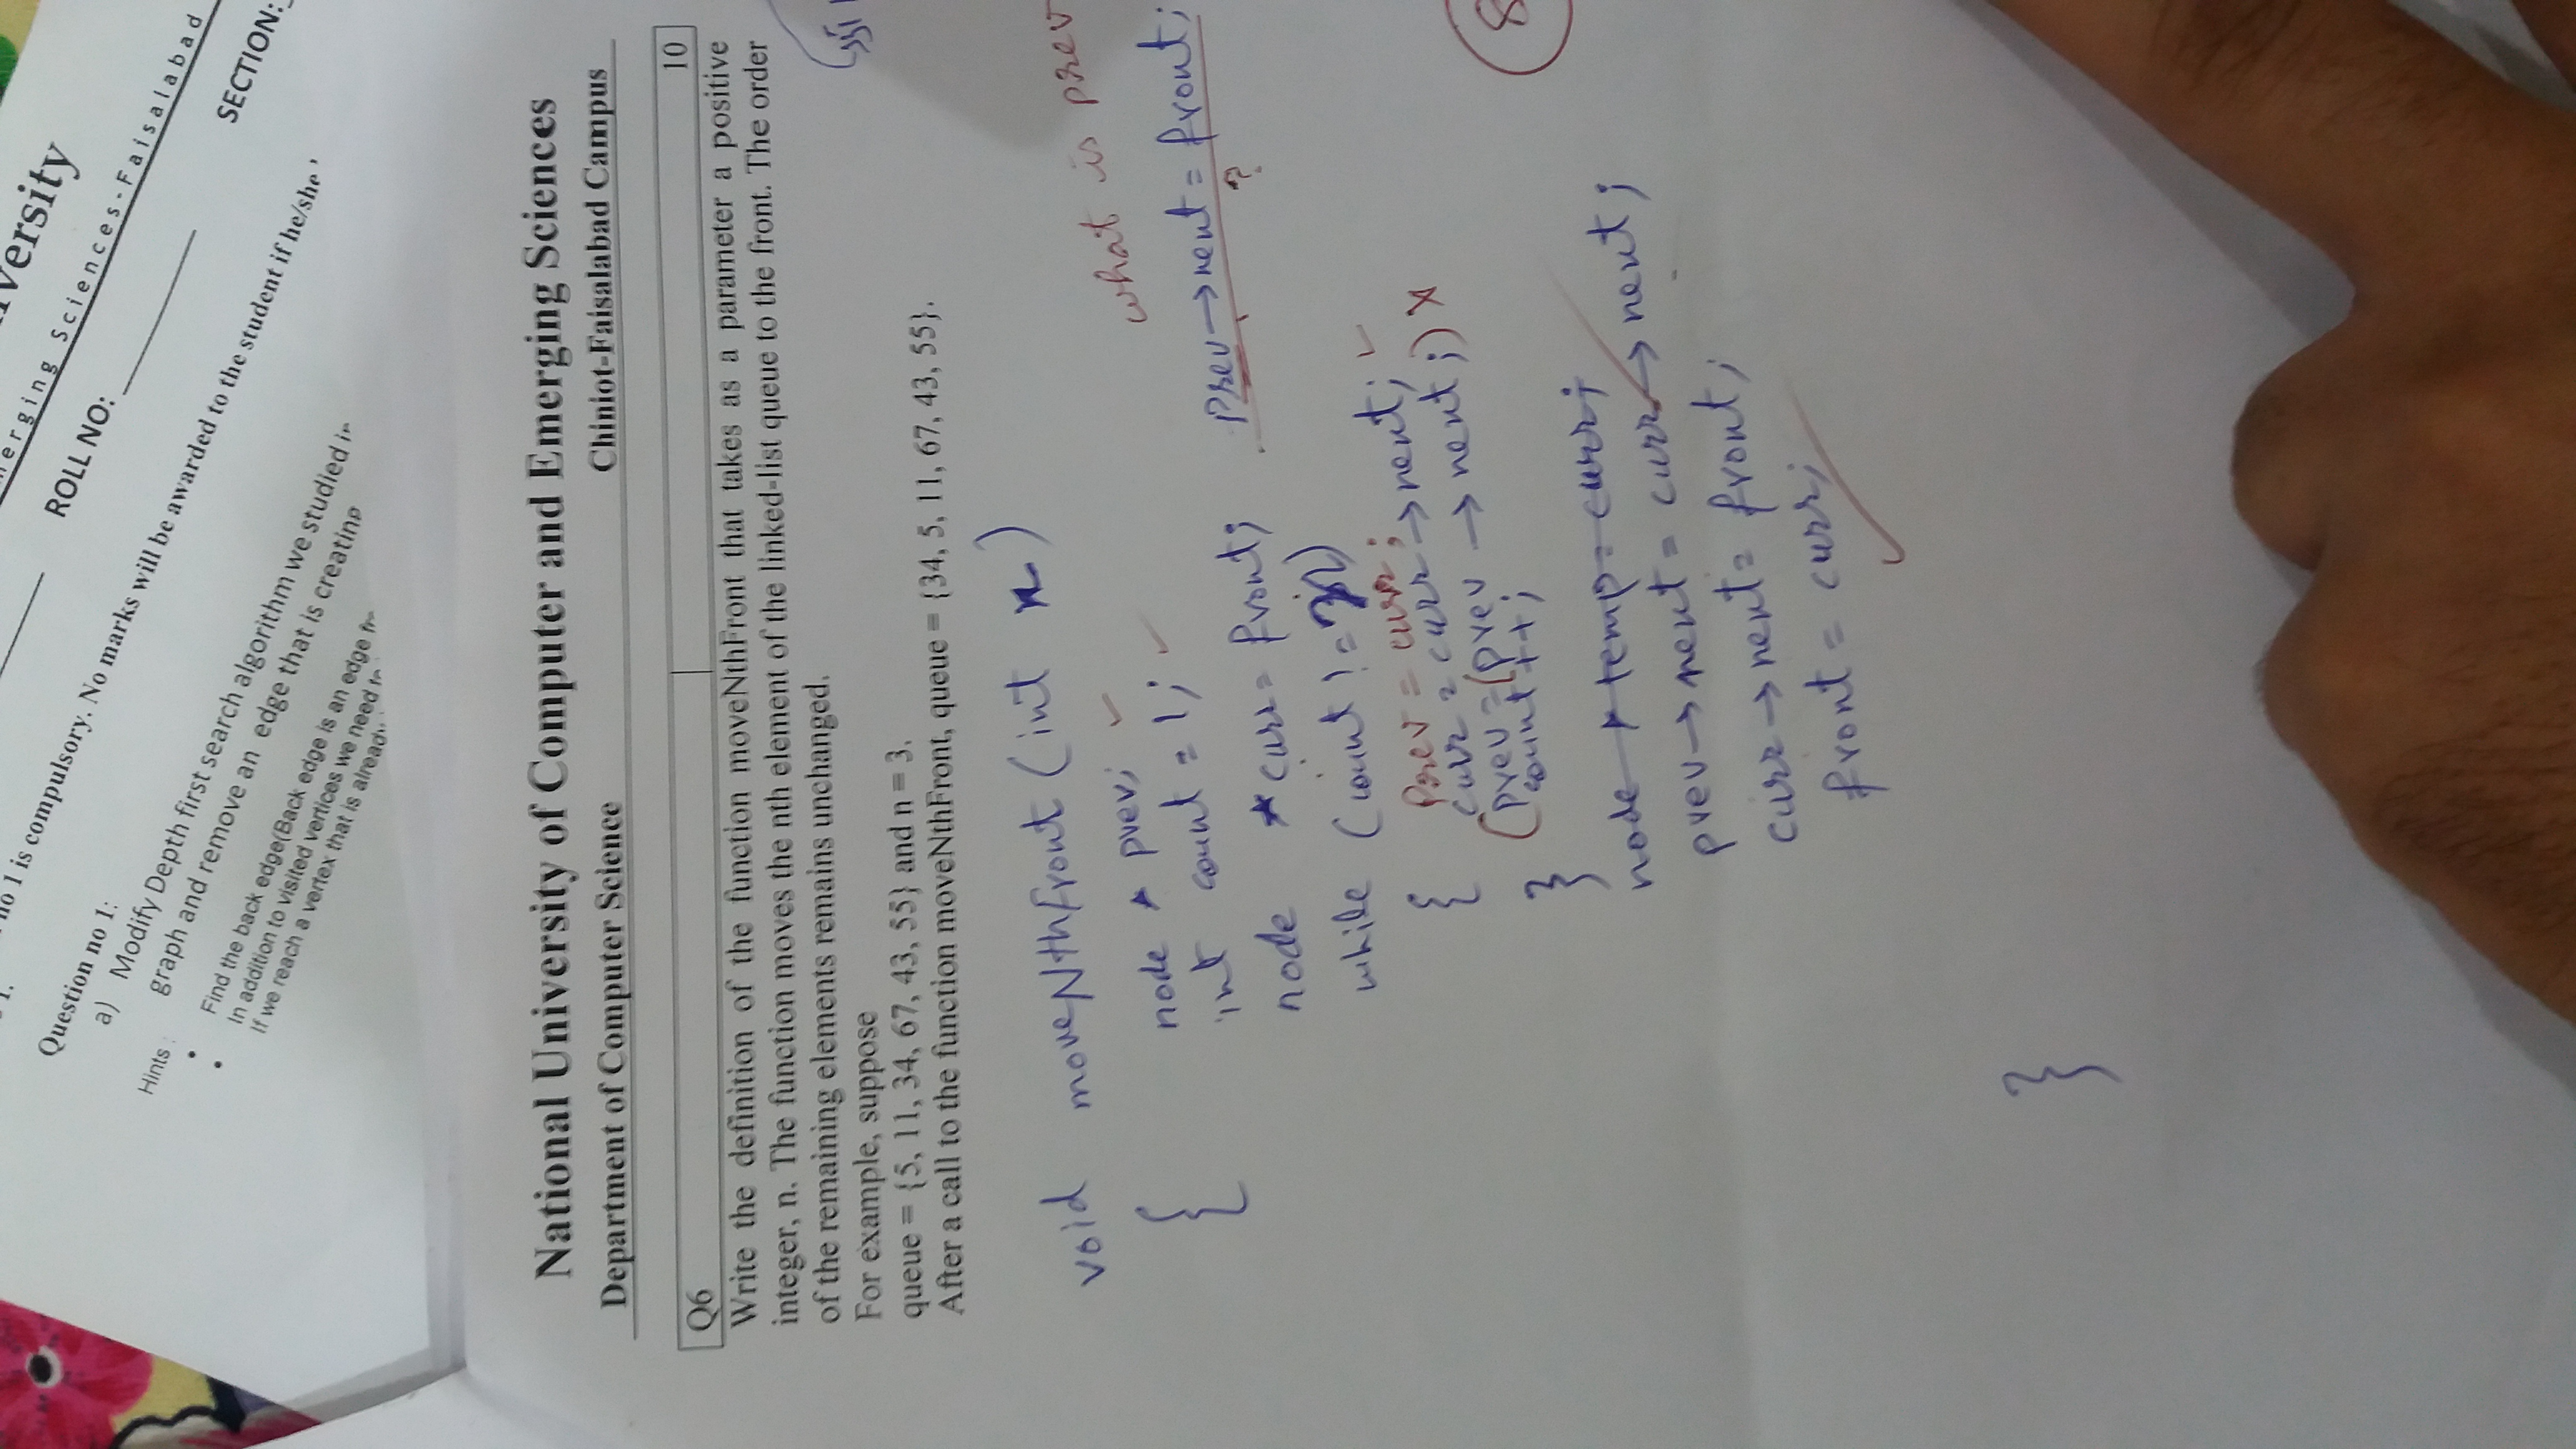 versity
merging Sciences-Faisalabad
ROLL NO:
SECTION:
no 1 is compulsory. No marks will be awarded to the student if he/she
Question no 1:
a) Modify Depth first search algorithm we studied in
graph and remove an edge that is creating
Hints :
• Find the back edge(Back edge is an edge fr
• In addition to visited vertices we need to
If we reach a vertex that is already
National University of Computer and Emerging Sciences
Department of Computer Science Chiniot-Faisalabad Campus
Q6 10
Write the definition of the function moveNthFront that takes as a parameter a positive
integer, n. The function moves the nth element of the linked-list queue to the front. The order
of the remaining elements remains unchanged.
For example, suppose
queue = {5, 11, 34, 67, 43, 55} and n = 3.
After a call to the function moveNthFront, queue = {34, 5, 11, 67, 43, 55}.
void moveNthfront (int n)
what is prev
{ node * prev;
int count = 1;
node *curr = front; prev→next = front;
?
while (count != n)
{ Prev = curr;
curr = curr →next;
(prev = (prev →next;) X
count ++;
8
}
node * temp = curr;
prev→next = curr→next;
curr→next = front;
front = curr;
}